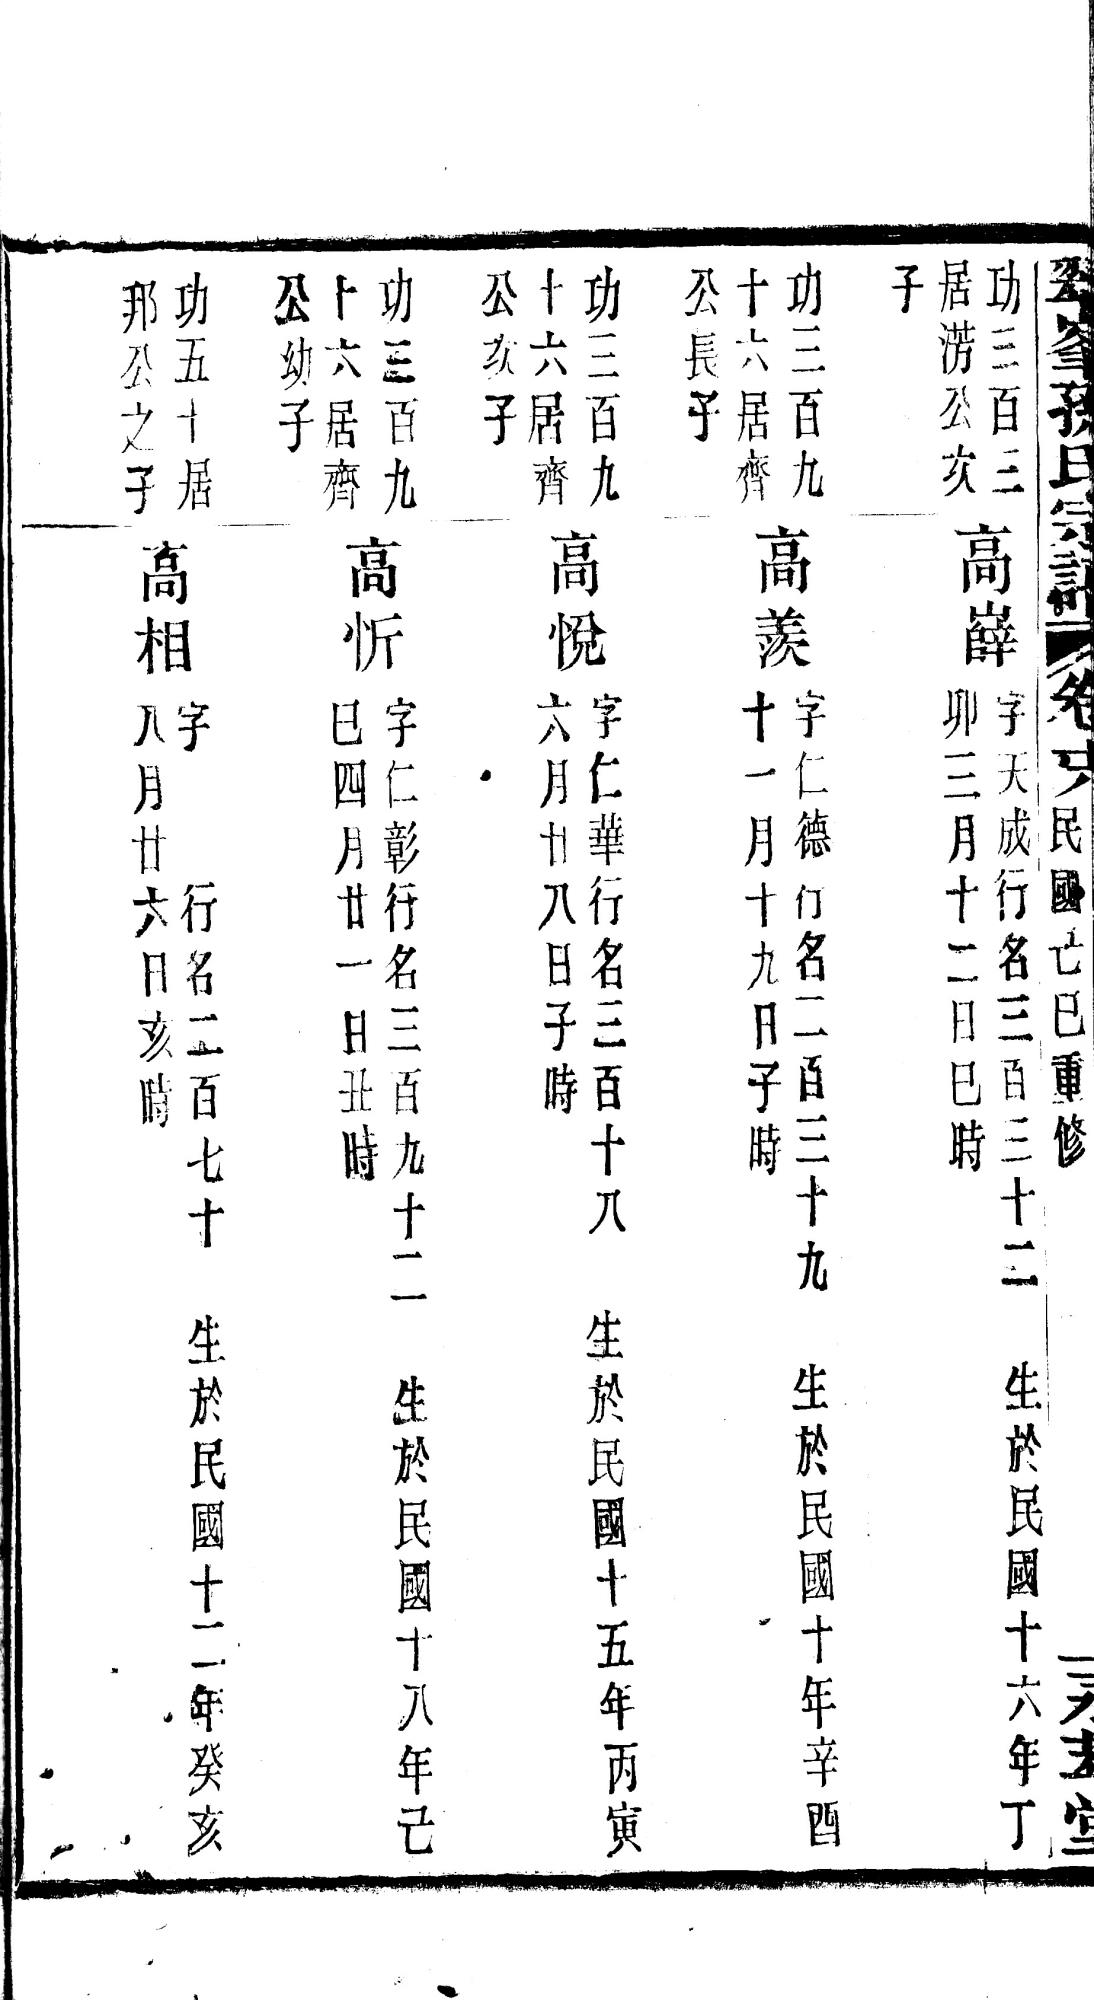 孫氏宗譜
卷
民國己巳重修
堂
功三百三
居淓公次
子
高嶭
字天成行名三百三十二 生於民國十六年丁
卯三月十二日巳時
功三百九
十六居齊
公長子
高羨
字仁德行名二百三十九 生於民國十年辛酉
十一月十九日子時
功三百九
十六居齊
公次子
高悅
字仁華行名三百十八 生於民國十五年丙寅
六月廿八日子時
功三百九
十六居齊
公幼子
高忻
字仁彰行名三百九十二 生於民國十八年己
巳四月廿一日丑時
功五十居
邦公之子
高相
字 行名二百七十 生於民國十二年癸亥
八月廿六日亥時